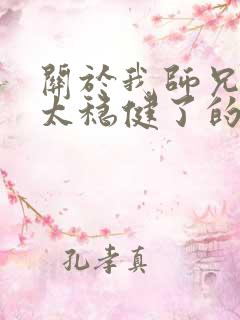 關於我師兄
太穩健了的
孔孝真